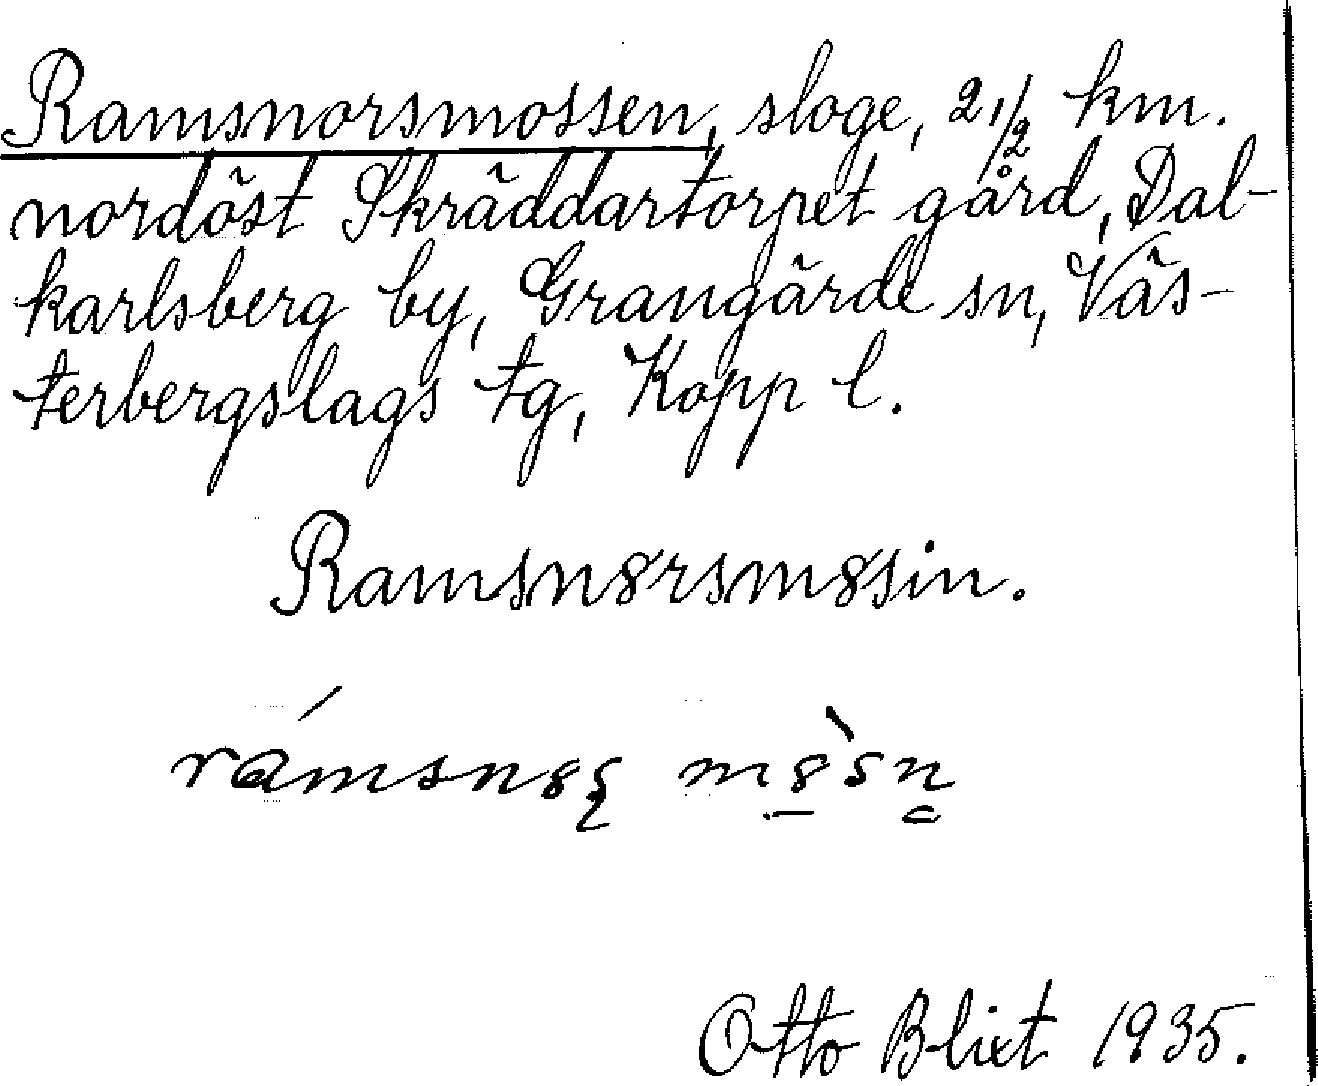 Ramsnorsmossen, sloge, 2 1/2 km.
nordöst Skräddartorpet gård, Dal-
karlsberg by, Grangärde sn, Väs-
terbergslags tg, Kopp l.
Ramsn8rsm8sin.
Otto Blixt 1935.